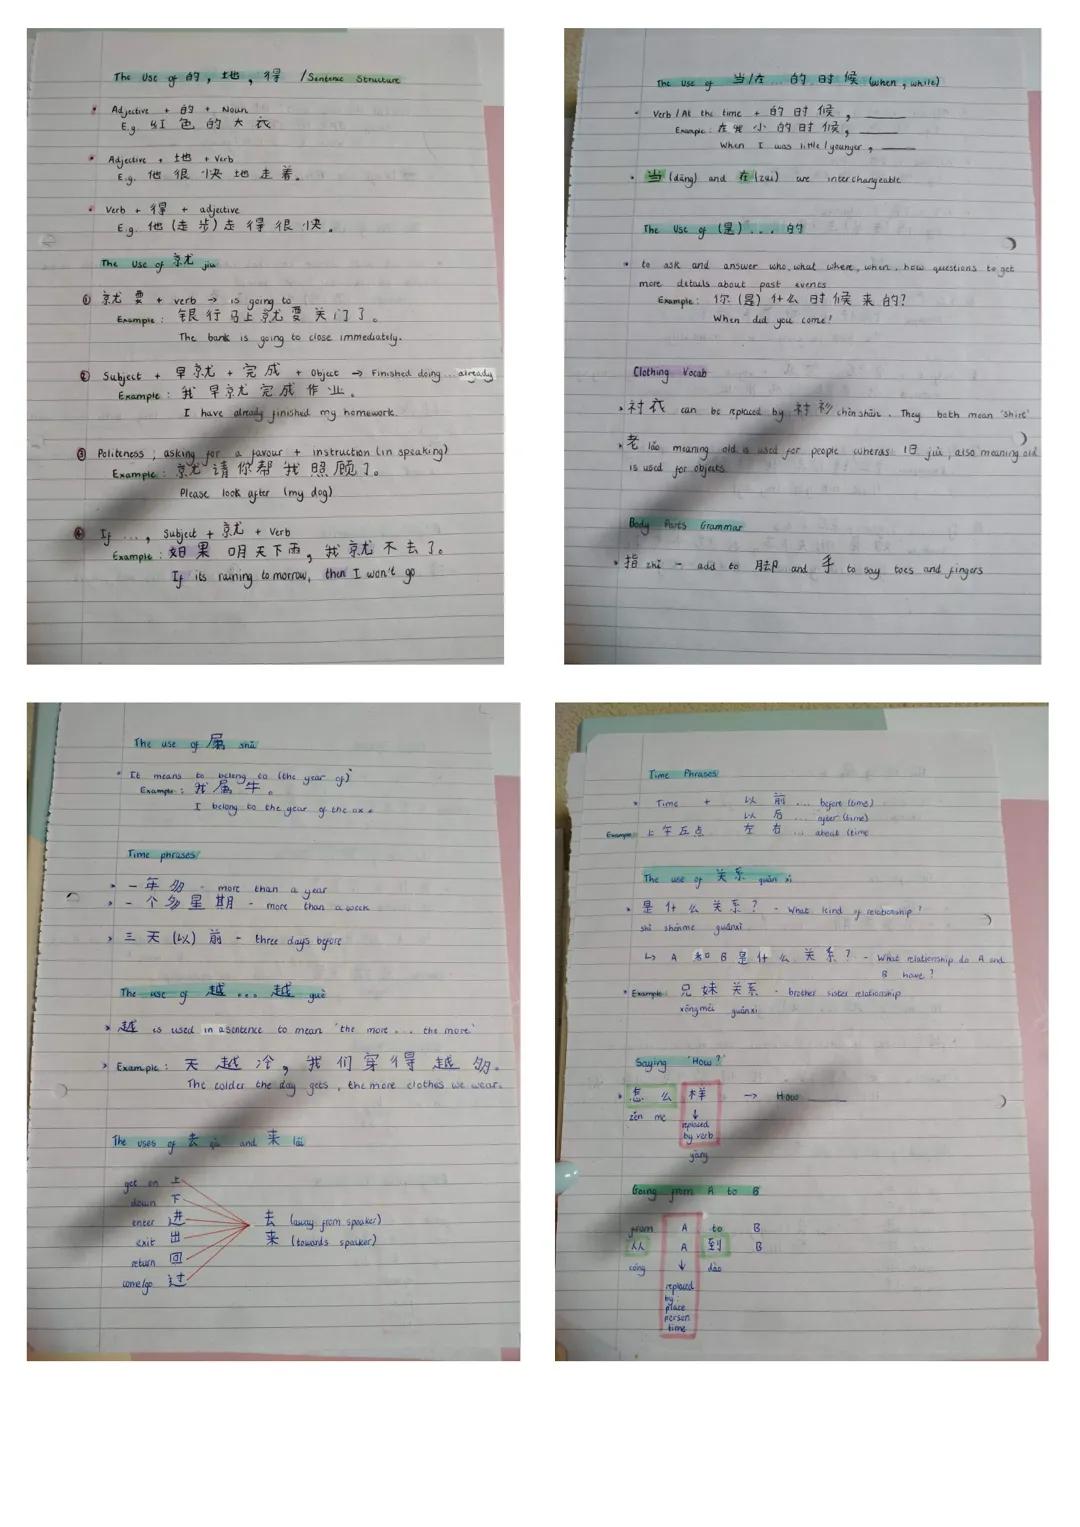 The Use of 的, 地, 得 / Sentence Structure
Adjective + 的 + Noun
E.g. 红色的大衣
Adjective + 地 + Verb
E.g. 他很快地走着。
Verb + 得 + adjective
E.g. 他(走步)走得很快。
The Use of 就 jiu
① 就要 + verb → is going to
Example: 银行马上就要关门了。
The bank is going to close immediately.
② Subject + 早就 + 完成 + Object → Finished doing... already
Example: 我早就完成作业。
I have already finished my homework.
③ Politeness; asking for a favour + instruction (in speaking)
Example: 就请你帮我照顾了。
Please look after (my dog)
④ If ..., Subject + 就 + Verb
Example: 如果明天下雨, 我就不去了。
If its raining tomorrow, then I won't go
The Use of 当/在... 的时候 (when, while)
Verb / At the time + 的时候,
Example: 在我小的时候,
When I was little / younger,
当 (dāng) and 在 (zai) are interchangeable
The Use of (是)... 的
to ask and answer who, what where, when, how questions to get
more details about past events
Example: 你(是)什么时候来的?
When did you come?
Clothing Vocab
衬衣 can be replaced by 衬衫 chènshān. They both mean 'shirt'
老 lǎo meaning old is used for people wheras 旧 jiù, also meaning old
is used for objects
Body Parts Grammar
指 zhǐ - add to 脚 and 手 to say toes and fingers
The use of 属 shǔ
It means to belong to (the year of)
Example: 我属牛。
I belong to the year of the ox.
Time phrases
一年多 - more than a year
一个多星期 - more than a week
三天(以)前 - three days before
The use of 越... 越 yuè
越 is used in a sentence to mean 'the more... the more'
Example: 天越冷, 我们穿得越多。
The colder the day gets, the more clothes we wear.
The uses of 去 qù and 来 lái
get on 上
down 下
enter 进 去 (away from speaker)
exit 出 来 (towards speaker)
return 回
come/go 过
Time Phrases
Time + 以前 ... before (time)
以后 ... after (time)
Example: 上午五点 左右 ... about (time
The use of 关系 guān xi
是什么关系? - What kind of relationship?
shì shénme guānxi
↳ A 和 B 是什么关系? - What relationship do A and
B have?
Example: 兄妹关系 - brother sister relationship
xōngmèi guānxi
Saying 'How?'
怎么样 → How
zěn me ↓
replaced
by verb
yàng
Going from A to B
from A to B
从 A 到 B
cóng ↓ dào
replaced
by:
place
person
time